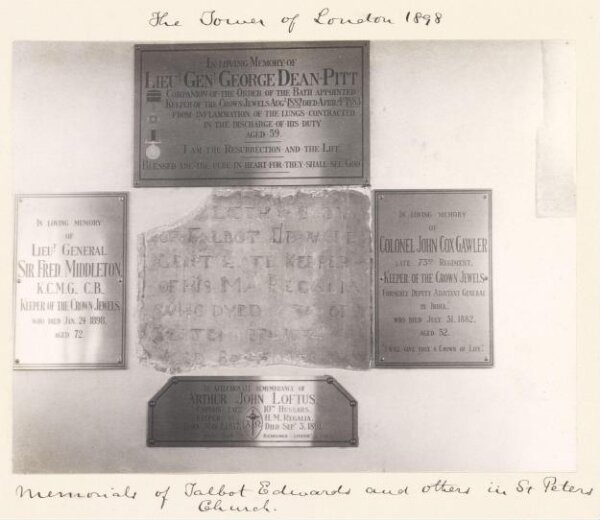 The Tower of London 1898
IN LOVING MEMORY OF
LIEUT GENL GEORGE DEAN-PITT
COMPANION OF THE ORDER OF THE BATH APPOINTED
KEEPER OF THE CROWN JEWELS AUGT 1882 DIED APRIL 1883
FROM INFLAMMATION OF THE LUNGS CONTRACTED
IN THE DISCHARGE OF HIS DUTY
AGED 59
I AM THE RESURRECTION AND THE LIFE
BLESSED ARE THE PURE IN HEART FOR THEY SHALL SEE GOD
IN LOVING MEMORY
OF
LIEUT GENERAL
SIR FRED MIDDLETON,
K.C.M.G. C.B.
KEEPER OF THE CROWN JEWELS.
WHO DIED JAN 24 1898.
AGED 72.
OF TALBOT
GENT LATE KEEPER
OF HIS MA
IN LOVING MEMORY
OF
COLONEL JOHN COX GAWLER
LATE 73RD REGIMENT,
KEEPER OF THE CROWN JEWELS
FORMERLY DEPUTY ADJUTANT GENERAL
IN INDIA.
WHO DIED JULY 31. 1882.
AGED 52.
I WILL GIVE THEE A CROWN OF LIFE.
IN AFFECTIONATE REMEMBRANCE OF
ARTHUR JOHN LOFTUS
CAPTAIN LATE 10TH HUSSARS.
KEEPER OF H.M. REGALIA.
DIED SEPT 3. 1891
Memorials of Talbot Edwards and others in St Peters
Church.